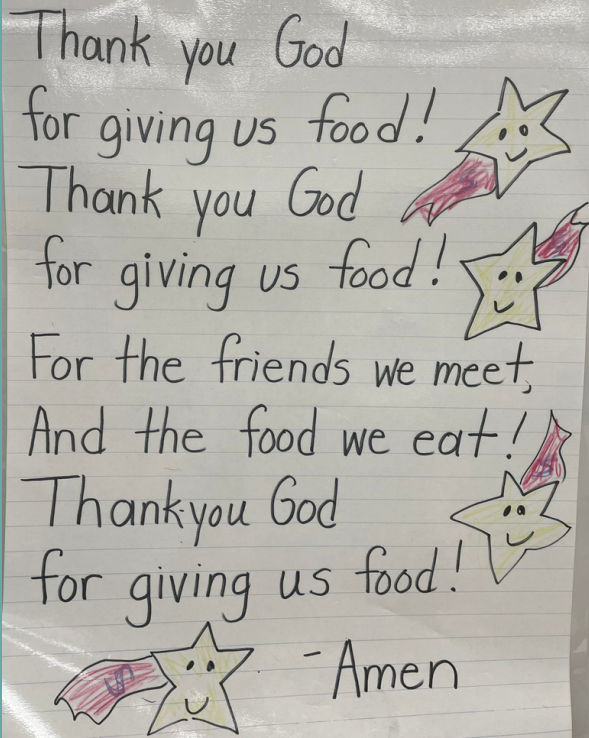 Thank you God
for giving us food!
Thank you God
for giving us food!
For the friends we meet,
And the food we eat!
Thank-you God
for giving us food!
- Amen
S